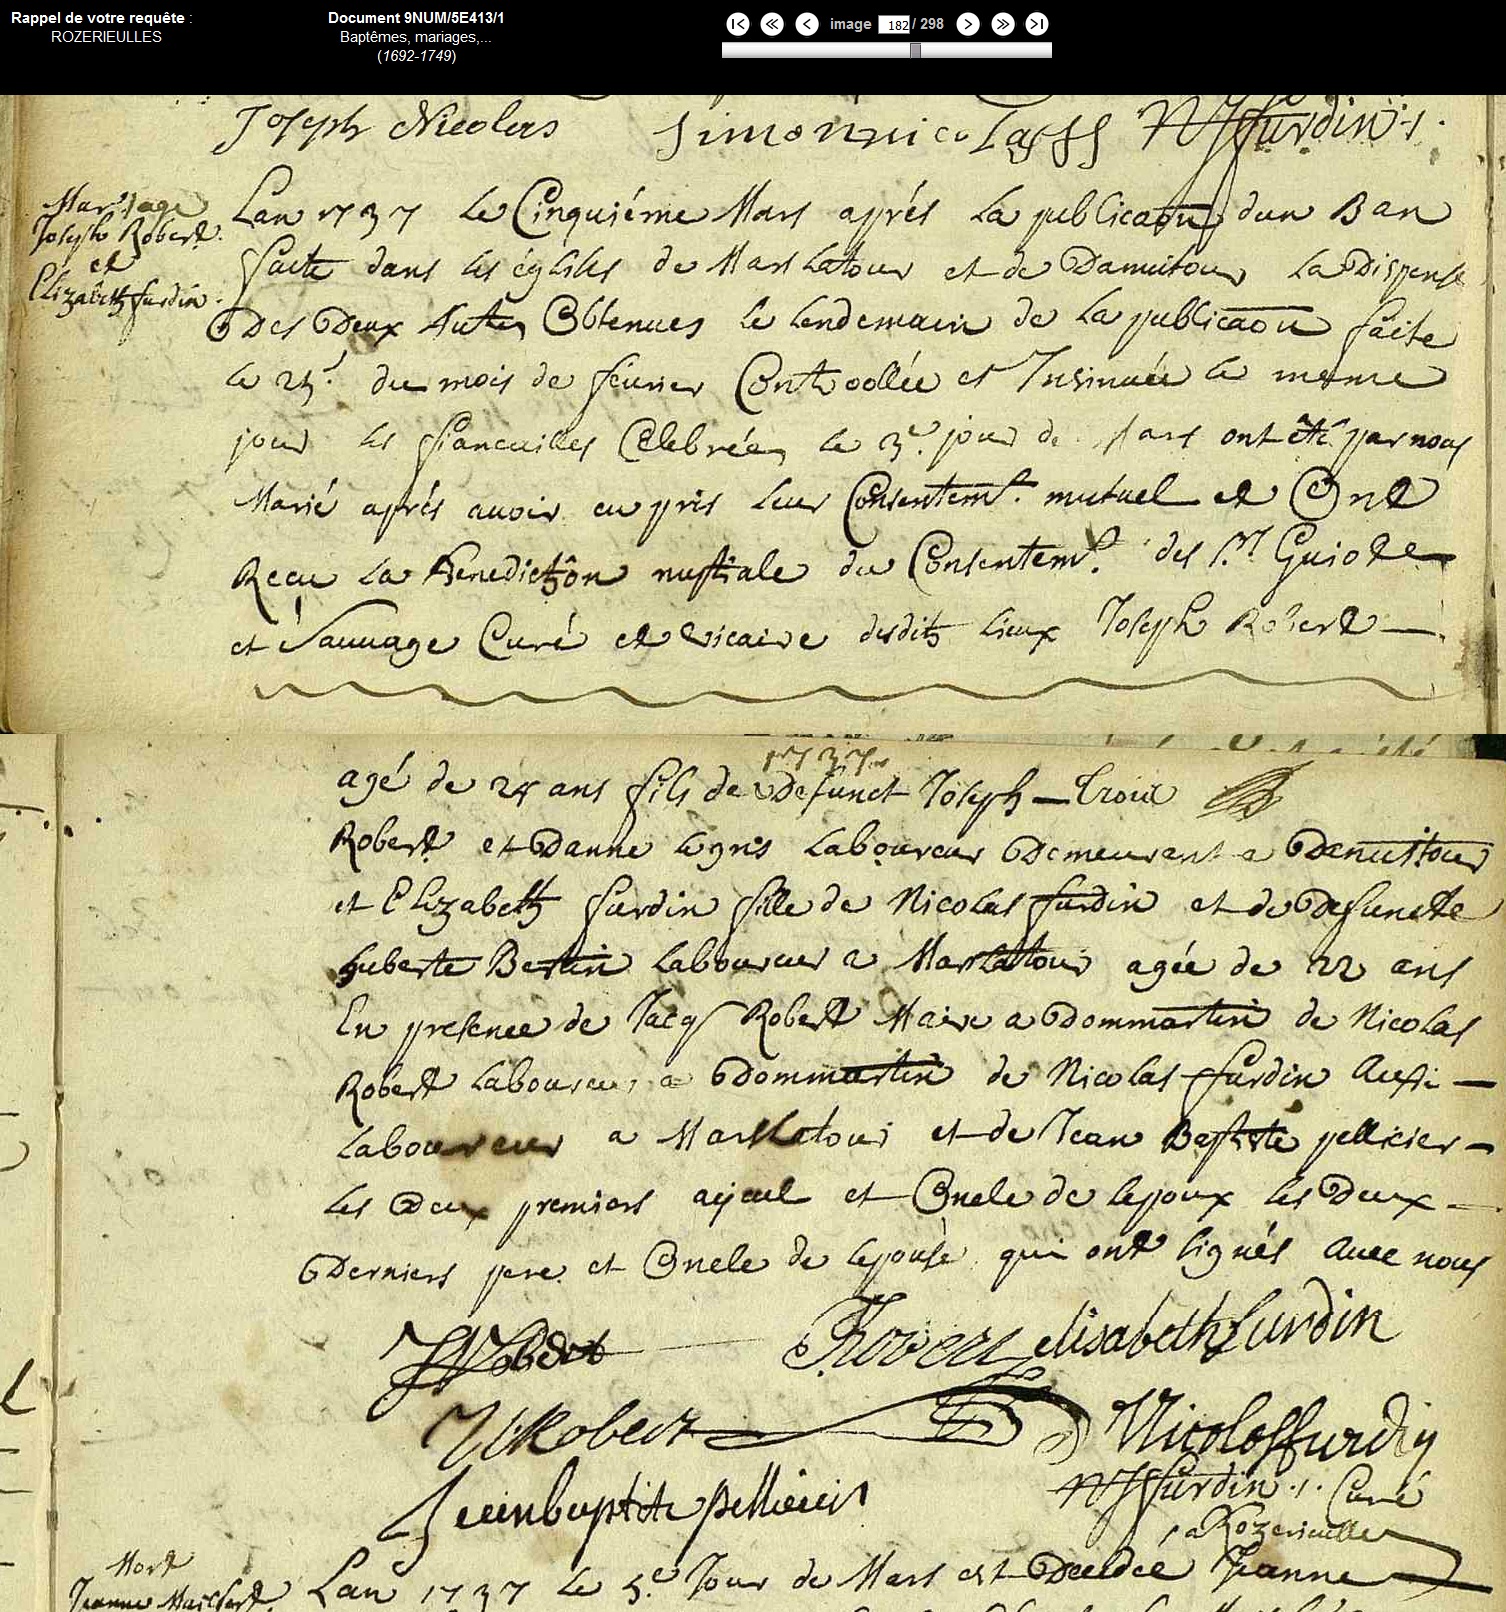 Rappel de votre requête :
ROZERIEULLES
Document 9NUM/5E413/1
Baptêmes, mariages,...
(1692-1749)
image 182 / 298
Joseph Nicolas Simon nicolass NJfurdin .1.
Mariage
Joseph Robert
et
Elizabeth furdin
Lan 1737 le Cinquiéme Mars aprés la publicaõn dun Ban
faite dans les églises de Marslatour et de Damuitour la Dispense
Des Deux Autres Obtenues le lendemain de la publicaõn faite
le 25e du mois de feurier Controollée et Insinuée le meme
jour les fiancailles Celebrées le 3e jour de Mars ont été par nous
Marié aprés auoir eu pris leur Consentemt. mutuel et Ont
Recu la Benedictiôn nuptiale du Consentemt. des Srs Guiot
et Sauuage Curé et vicaire desdits lieux Joseph Robert
1737
agé de 24 ans fils de Defunct Joseph Croix
Robert et Danne legris laboureur Demeurant a Danuitour
et Elizabeth furdin fille de Nicolas furdin et de Defuncte
huberte Bertin laboureur a Marslatour agée de 22 ans
En presence de Jacq Robert Maire a Dommartin de Nicolas
Robert laboureur a Dommartin de Nicolas furdin Aussi
laboureur a Marslatour et de Jean Baptiste pellicier
les Deux premiers ayeul et Oncle de lepoux les Deux
Derniers pere et Oncle de lepouse qui ont signés Auec nous
JRobert Rober elisabeth furdin
NRobert Nicolas furdin
Jeanbaptiste pellicier NJfurdin .1. Curé
a Rozerieulle
Mort
Jeanne
Lan 1737 le 5e Jour de Mars est Decedée Jeanne